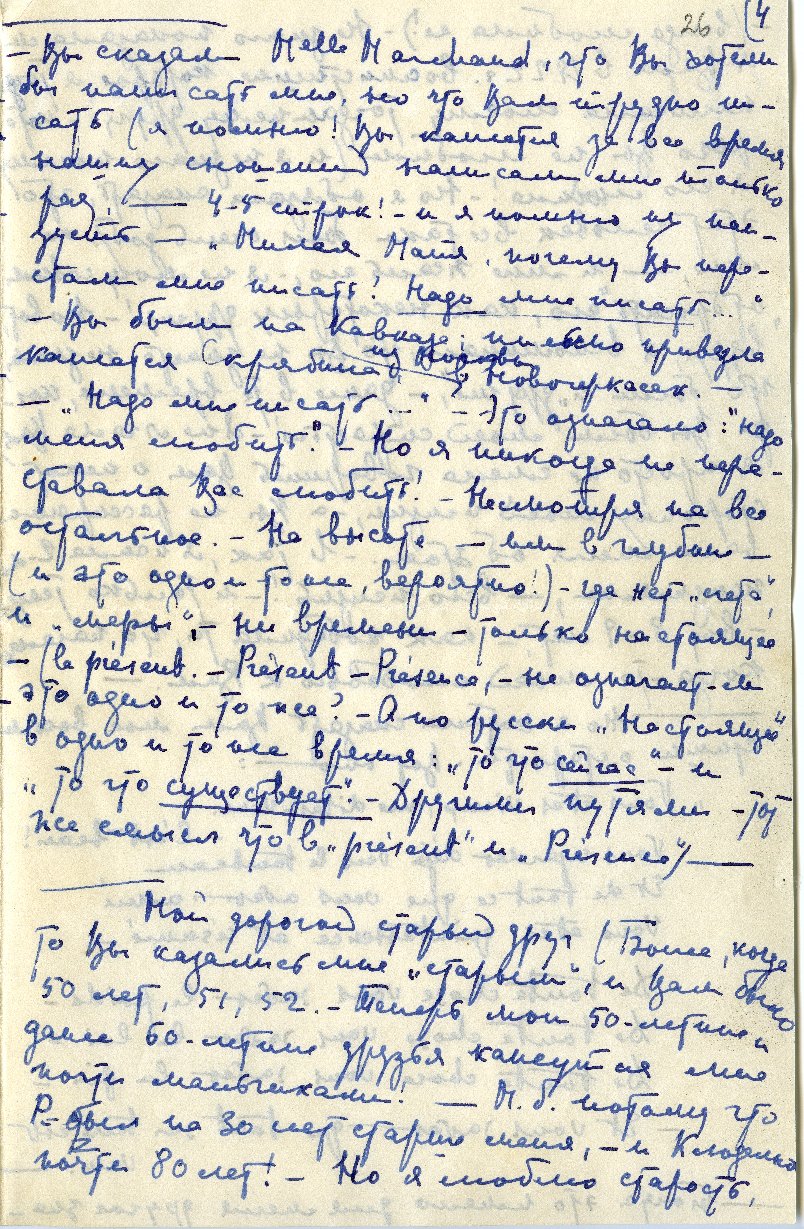 26 (4
– Вы сказали Melle Marchand, что Вы хотели
бы написать мне, но что Вам трудно пи-
сать (я помню! Вы кажется за все время
наших сношений написали мне только
раз! — 4-5 строк! – и я помню их наи-
зусть — „Милая Майя, почему Вы пере-
стали мне писать? Надо мне писать..."
– Вы были на Кавказе; письмо привезла
кажется Скрябина из Москвы в Новочеркасск. —
– „Надо мне писать..." – Это означало: "надо
меня любить". – Но я никогда не пере-
ставала Вас любить. – Несмотря на все
остальное. – На высоте – или в глубине –
(и это одно и то же вероятно!) – где нет „счета",
и „меры", – ни времени – только настоящее
– (le présent. – Présent – Présence, – не означает-ли
– это одно и то же? – А по русски „Настоящее"
в одно и то же время: „то что сейчас" – и
„то что существует" – Другими путями – тот
же смысл что в „présent" и „Présence") —
Мой дорогой старый друг (Боже, когда
то Вы казались мне „старым", и Вам было
50 лет, 51, 52. – Теперь мои 50-летние и
даже 60-летние друзья кажутся мне
почти мальчиками! — М. б. потому что
Р– был на 30 лет старше меня, – и Клоделю
почти 80 лет! – Но я люблю старость,